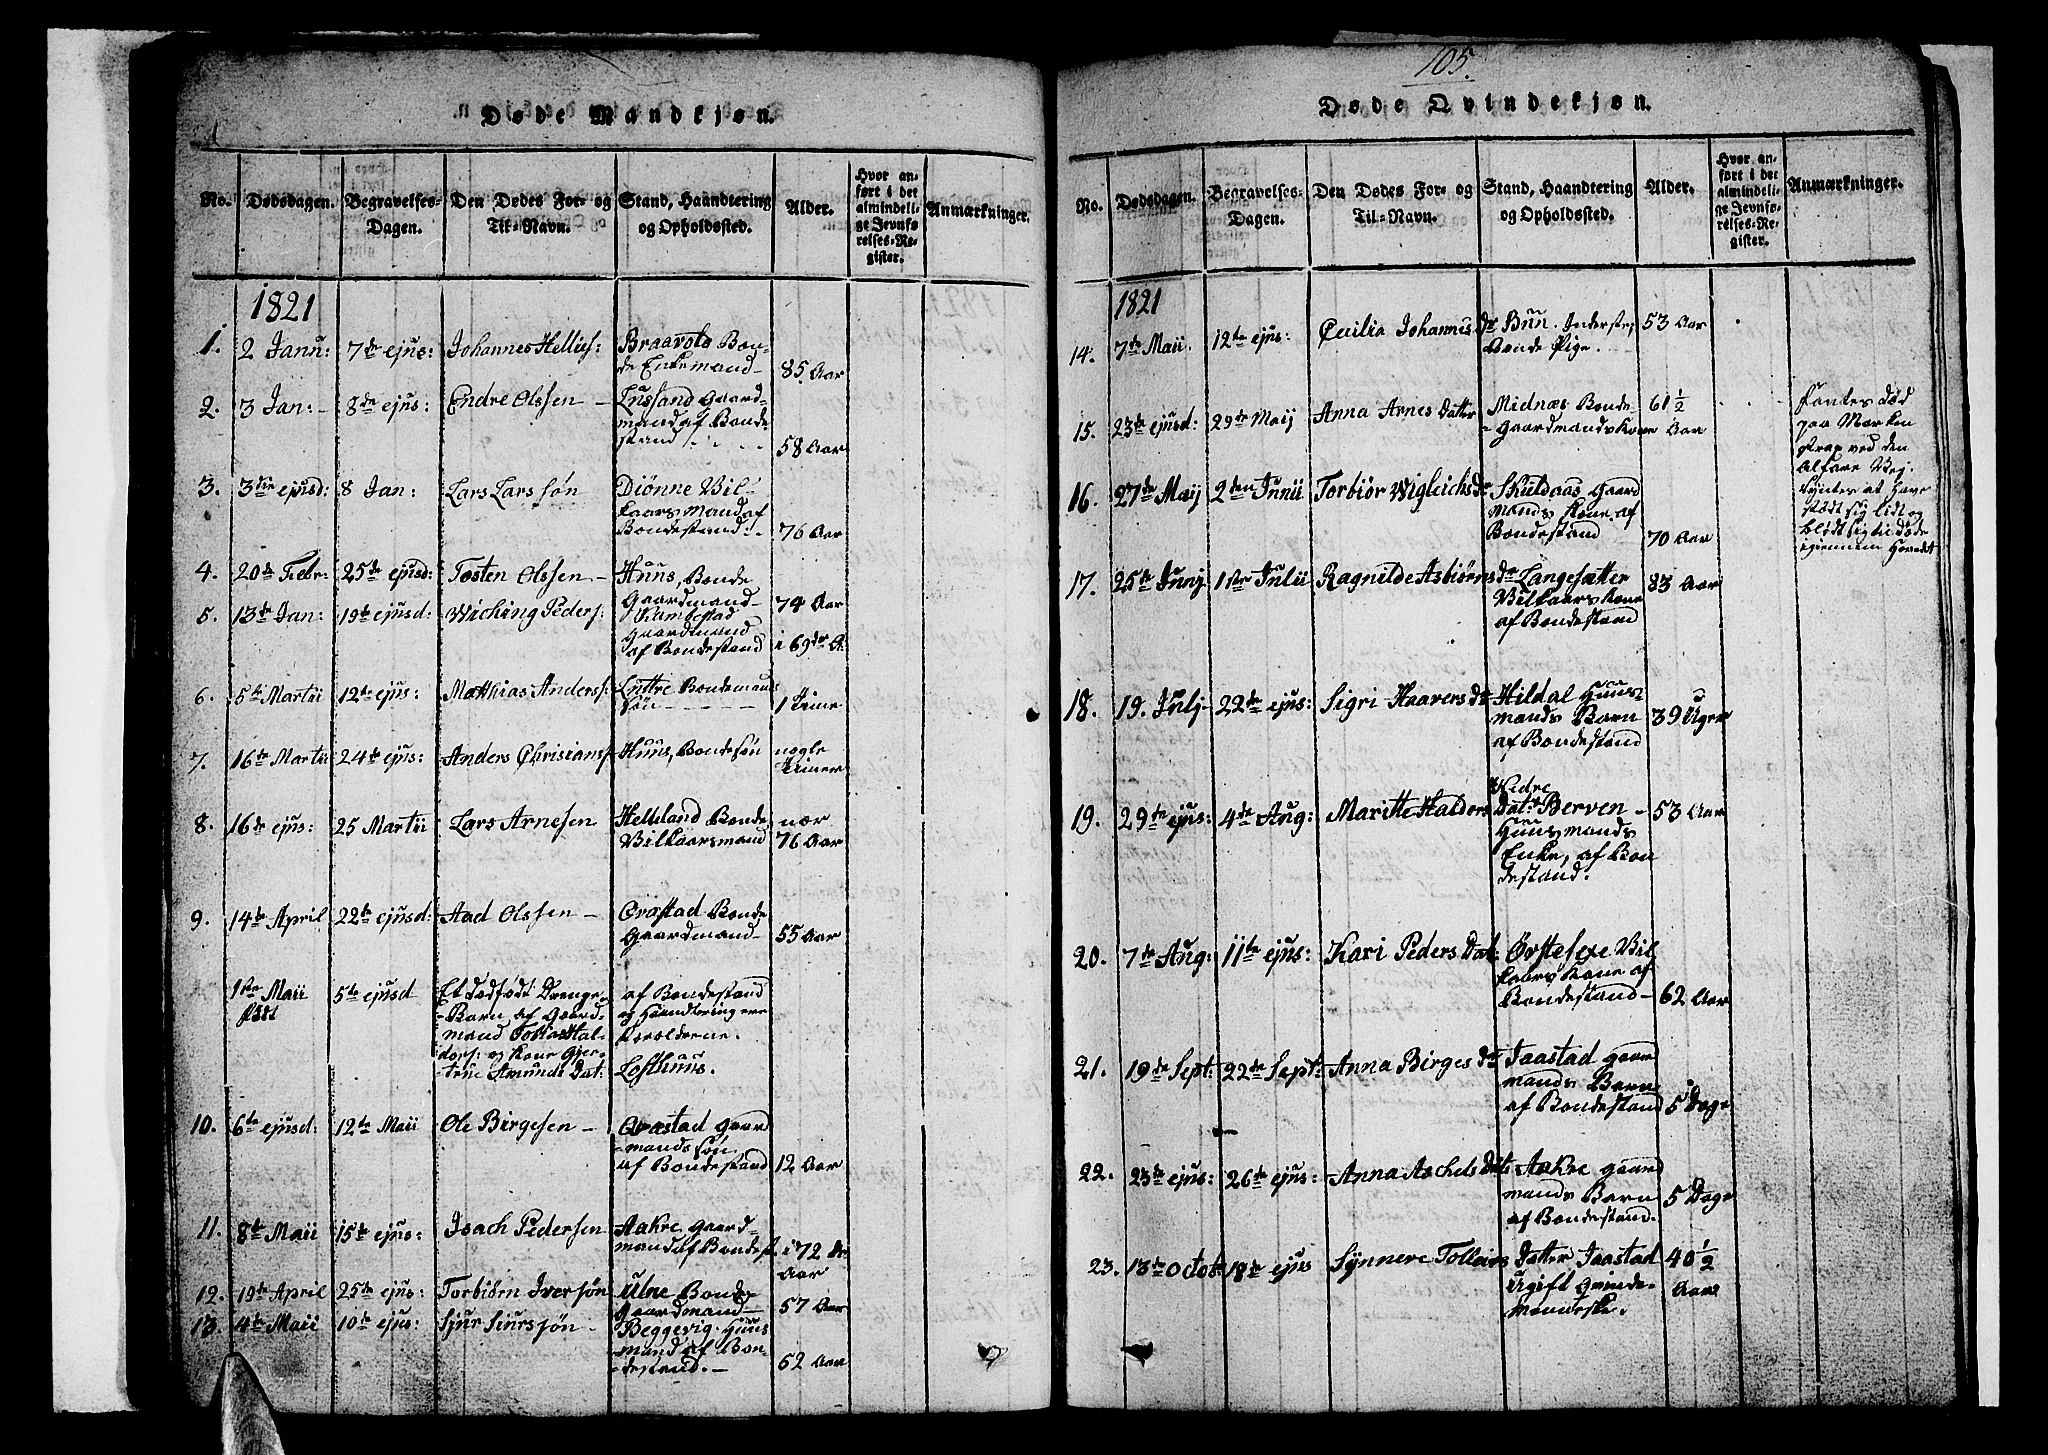 105.
Døde Mandkjøn.
No.
Dødsdagen.
Begravelses-
Dagen.
Den Dødes For- og
Til-Navn.
Stand, Haandtering
og Opholdssted.
Alder.
Hvor an-
ført i det
almindeli-
ge Jevnfø-
relses-Re-
gister.
Anmærkninger.
1821
1. 2 Janu: 7de ejus: Johannes Hellies: Braavold Bon-
de Enkemand- 85 Aar
2. 3 Jan:- 8de ejus: Endre Olssen - Lussand Gaard-
mand af Bonde-
stand 58 Aar
3. 3die ejusd: 8 Jan: Lars Larssøn Diönne Vil-
kaarsmand af
Bondestand 76 Aar
4. 20de Febr: 25de ejusd: Tosten Olssen - Huus, Bonde
Gaardmand- 74 Aar
5. 13de Jan: 19de ejusd: Wiching Peders: Kambestad
Gaardmand
af Bondestand i 69de A.
6. 5te Martii 12te ejus: Matthias Anders: Luttre Bondemands
søn 1 Time
7. 16de Martii 24de ejus: Anders Chrisians: Huus, Bondesøn nogle
Timer
8. 16de ejus: 25 Martii Lars Arnesen Helleland Bonde nær
Vilkaarsmand 76 Aar
9. 14de April 22de ejusd: Aad Olssen - Qvæstad Bonde
Gaardmand- 55 Aar
1ste Maii 5te ejusd Et dødfødt Drenge- af Bondestand
født Barn, af Gaard- og Haandtering ere
mand Tobias Hal- Forældrene.
dors: og Kone Gjer-
true Amunds Dat: Lofthuus.
10. 6te ejusd: 12te Maii Ole Birgesen - Qvæstad Gaard
mandssøn
af Bondestand 12 Aar
11. 8de Maii 15te ejus: Isach Pedersen Aakre, Gaard-
mand af Bondest. i 72de
Aar
12. 19de April 25de ejus: Torbiörn Iversøn Ulne Bonde
Gaardmand- 57 Aar
13. 4de Maii 10de ejus: Sjur Siurssøn - Beggevig. Huus
mand af Bon-
destand. - 62 Aar
Døde Qvindekjøn.
No.
Dødsdagen.
Begravelses-
Dagen.
Den Dødes For- og
Til-Navn.
Stand, Haandtering
og Opholdssted.
Alder.
Hvor an-
ført i det
almindeli-
ge Jevnfø-
relses-Re-
gister.
Anmærkninger.
1821
14. 7de Maii. 12te ejus: Cecilia Johannis Dr Buu. Inderste,
Bonde Pige. 53 Aar
15. 23de ejusd: 29de Maij Anna Arnes Datter Midnæs Bonde
Gaardmands Kone 61 1/2
Aar
Fantes død
paa Marken
strax ved den
Alfare Vej.
Syntes at have
stødt sig lidt og
blødt sig til døde
igiennem Hovedet
16. 27de Maij 2den Junii Torbiör Wigleichs Dr Skuldaas Gaard
mands Kone af
Bondestand 70 Aar
17. 25de Junij 1ste Julii Ragnilde Asbiörns Dr Langesætter
Vilkaars Kone
af Bondestand 83 Aar
18. 19. Julj- 22de ejus: Sigri Haavers Dr Hildal Huus-
mands Barn
af Bondestand 39 Uger
19. 29de ejus: 4de Aug: Maritte Haldors Dat: Nidre
Berven -
Huusmands
Enke, af Bon
destand. 53 Aar
20. 7de Aug: 11te ejus: Kari Peders Dat: Øvstesexe Vil
kaars Kone af
Bondestand- 62 Aar
21. 19de Sept: 22de Sept: Anna Birges Dr Jaastad Gaard
mands Barn
af Bondestand 5 Dage
22. 23de ejus: 26de ejus: Anna Aschels Dat: Aakre Gaard
mands Barn
af Bondestand. 5 Dage
23. 13de Octob: 18de ejus Synneve Tolleivs Datter Jaastad
Ugift Qvinde-
menneske. 40 1/2
Aar